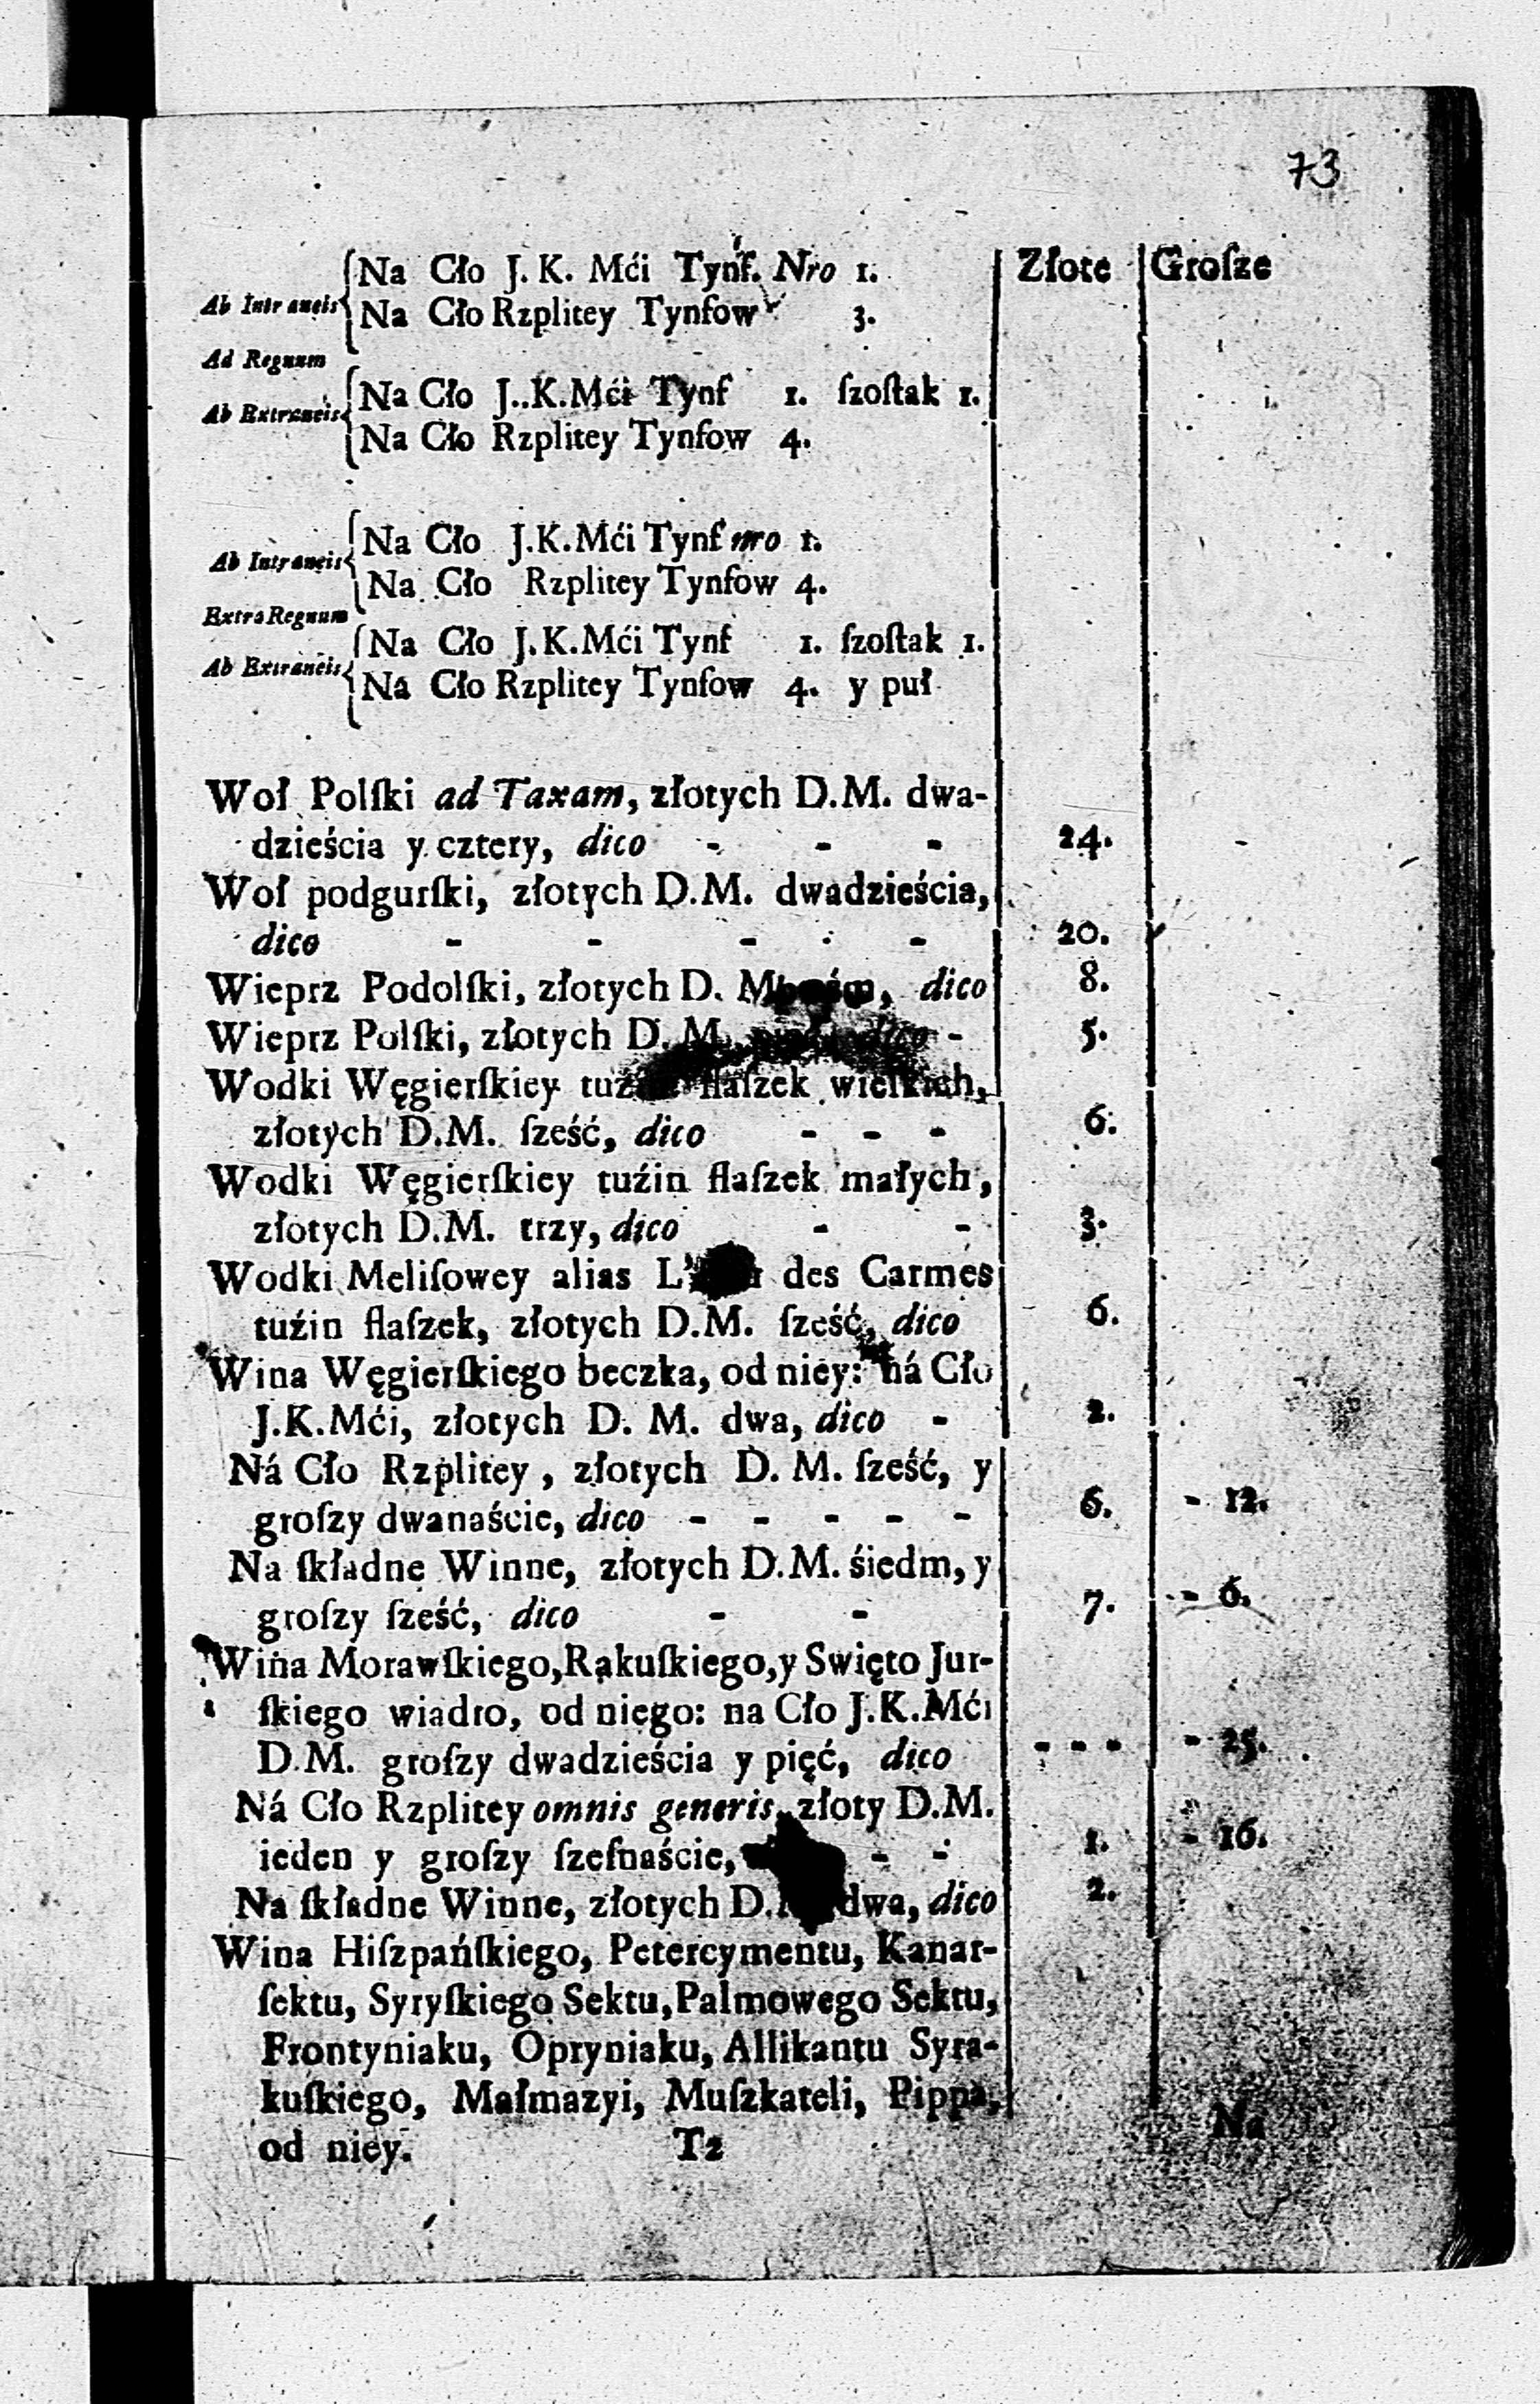 73
Złote Grosze
Na Cło J. K. Mći Tynf. Nro 1.
Ab Intraneis
Na Cło Rzplitey Tynfow 3.
Ad Regnum
Na Cło J..K.Mći Tynf 1. szoſtak 1.
Ab Extraneis
Na Cło Rzplitey Tynfow 4.
Na Cło J.K.Mći Tynf nro 1.
Ab Intraneis
Na Cło Rzplitey Tynfow 4.
Extra Regnum
Na Cło J.K.Mći Tynf 1. szoſtak 1.
Ab Extraneis
Ná Cło Rzplitey Tynfow 4. y puł
Woł Polſki ad Taxam, złotych D.M. dwa-
dzieścia y cztery, dico - - - 24. -
Woł podgurſki, złotych D.M. dwadzieścia,
dico - - - - 20.
Wieprz Podolſki, złotych D. M dico 8.
Wieprz Polſki, złotych D. M. dico - 5.
Wodki Węgierſkiey flaſzek wielkich,
złotych D.M. ſześć, dico - - - 6.
Wodki Węgierſkiey tuźin flaſzek małych,
złotych D.M. trzy, dico - - 3.
Wodki Meliſowey alias des Carmes
tuźin flaſzek, złotych D.M. ſześć, dico 6.
Wina Węgierſkiego beczka, od niey: ná Cło
J.K.Mći, złotych D. M. dwa, dico - 2.
Ná Cło Rzplitey, złotych D. M. ſześć, y
groſzy dwanaście, dico - - - - - 6. - 12.
Na ſkładne Winne, złotych D.M. śiedm, y
groſzy ſześć, dico - - 7. - 6.
Wina Morawſkiego, Rakuſkiego, y Swięto Jur-
ſkiego wiadro, od niego: na Cło J.K.Mći
D.M. groſzy dwadzieścia y pięć, dico - - - - 25.
Ná Cło Rzplitey omnis generis, złoty D.M.
ieden y groſzy szeſnaście, - - 1. - 16.
Na ſkładne Winne, złotych dwa, dico 2.
Wina Hiſzpańſkiego, Petercymentu, Kanar-
ſektu, Syryſkiego Sektu, Palmowego Sektu,
Frontyniaku, Opryniaku, Allikantu Syra-
kuſkiego, Małmazyi, Muſzkateli, Pippa,
od niey. T2 Na